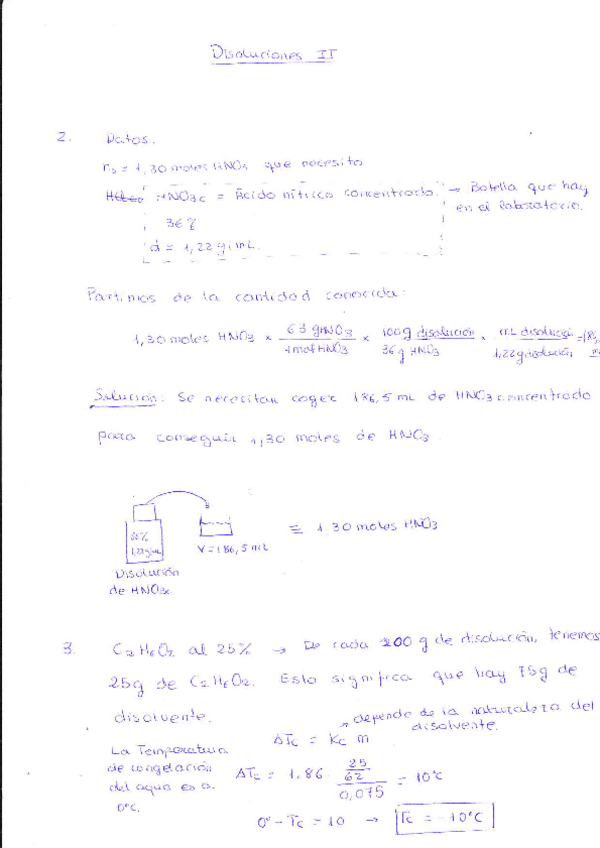 Disoluciones II
2. Datos.
n₂ = 1,30 moles HNO₃ que necesito
HNO₃c = Ácido nítrico concentrado. → Botella que hay
en el laboratorio.
36%
d = 1,22 g/mL.
Partimos de la cantidad conocida:
1,30 moles HNO₃ × 63 g HNO₃ / 1 mol HNO₃ × 100 g disolución / 36 g HNO₃ × mL disolución / 1,22 g disolución
Solución: Se necesitan coger 186,5 mL de HNO₃ concentrado
para conseguir 1,30 moles de HNO₃.
V = 186,5 mL ≡ 1,30 moles HNO₃
Disolución
de HNO₃c
3. C₂H₆O₂ al 25% → De cada 100 g de disolución, tenemos
25g de C₂H₆O₂. Esto significa que hay 75g de
disolvente.
→ depende de la naturaleza del
disolvente.
ΔTc = Kc m
La Temperatura
de congelación
del agua es a
0°C.
ΔTc = 1,86 · (25/62) / 0,075 = 10°C
0° - Tc = 10 → Tc = -10°C